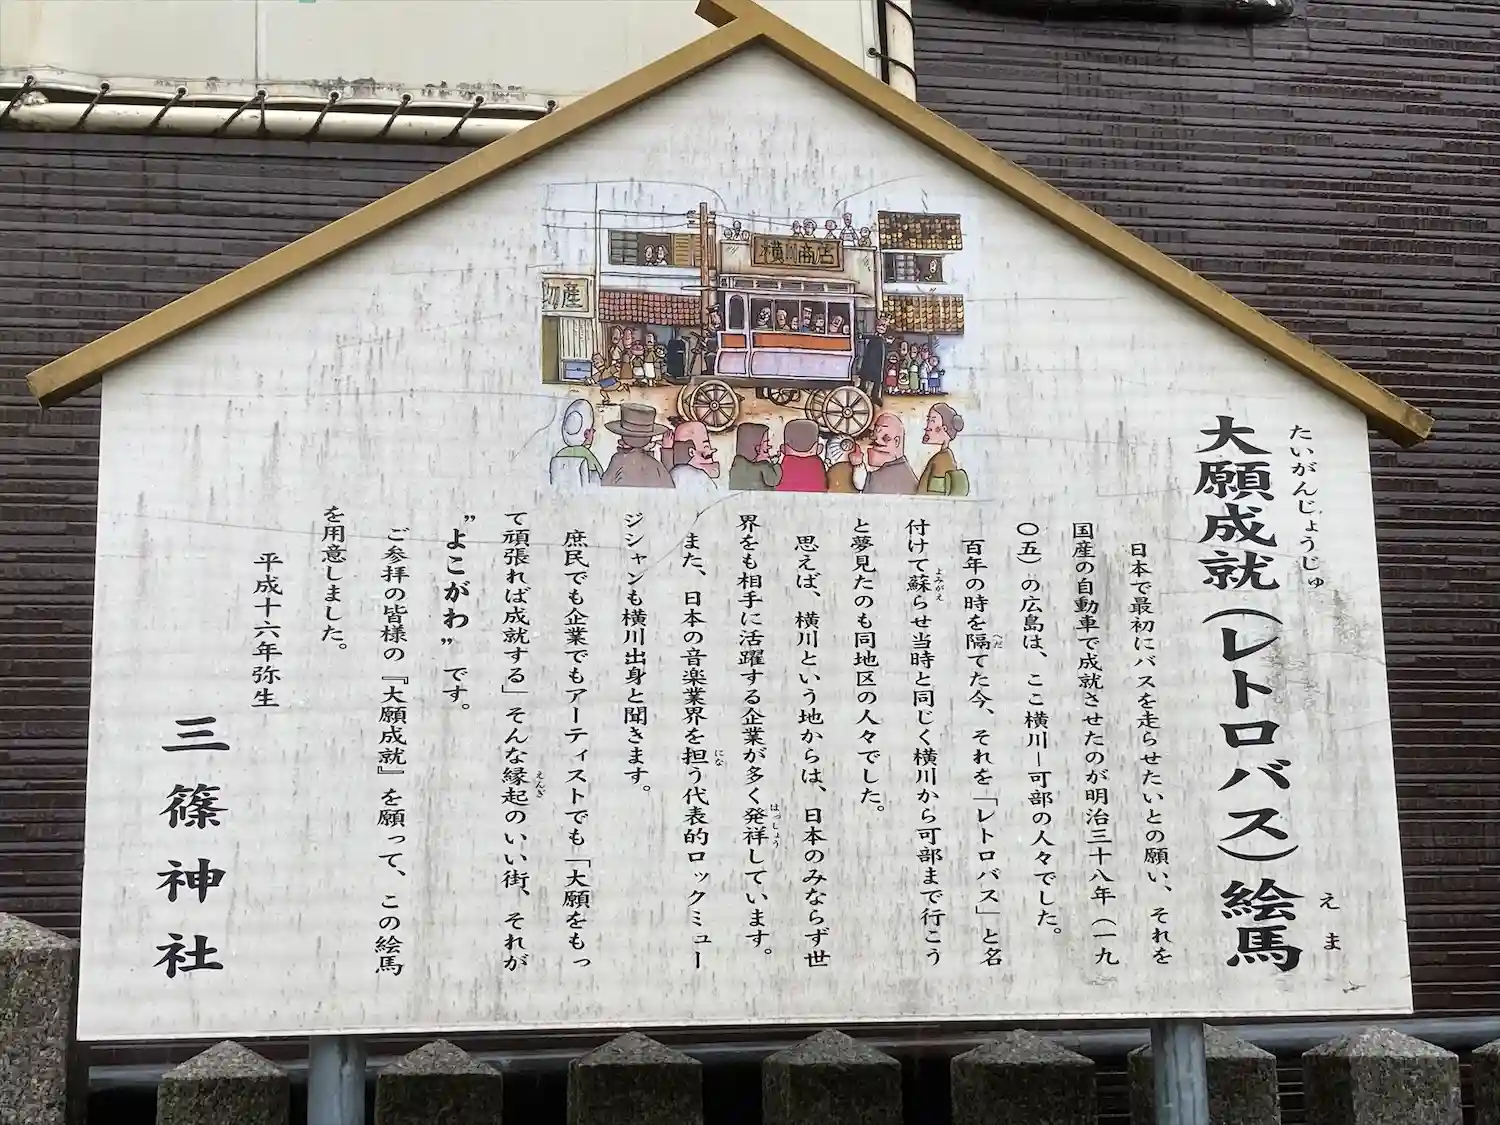 横川商店
物産
たいがんじょうじゅ
えま
大願成就(レトロバス)絵馬
日本で最初にバスを走らせたいとの願い、それを
国産の自動車で成就させたのが明治三十八年(一九
〇五)の広島は、ここ横川―可部の人々でした。
百年の時を隔てた今、それを「レトロバス」と名
へだ
付けて蘇らせ当時と同じく横川から可部まで行こう
よみがえ
と夢見たのも同地区の人々でした。
思えば、横川という地からは、日本のみならず世
界をも相手に活躍する企業が多く発祥しています。
はっしょう
また、日本の音楽業界を担う代表的ロックミュー
にな
ジシャンも横川出身と聞きます。
庶民でも企業でもアーティストでも「大願をもっ
て頑張れば成就する」そんな縁起のいい街、それが
えんぎ
"よこがわ"です。
ご参拝の皆様の『大願成就』を願って、この絵馬
を用意しました。
平成十六年弥生
三篠神社